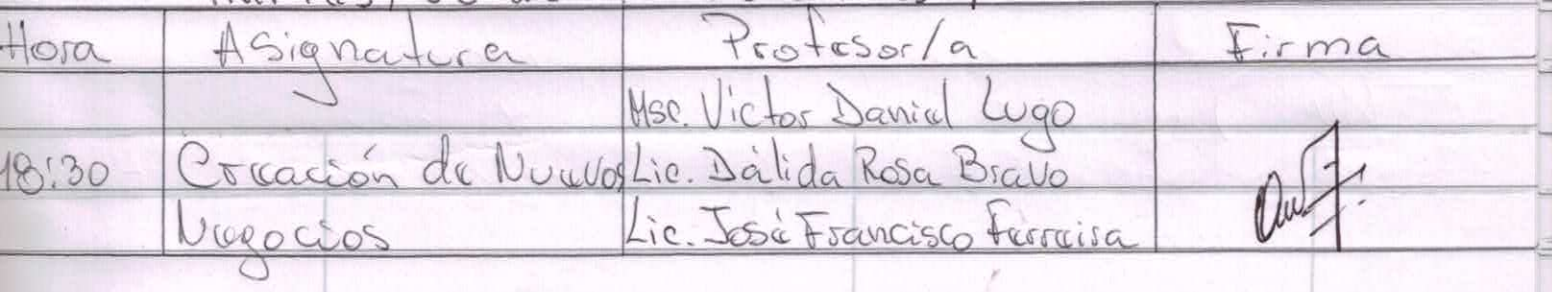 Hora Asignatura Profesor/a Firma
Msc. Victor Daniel Lugo
18:30 Creación de Nuevos Lic. Dálida Rosa Bravo
Negocios Lic. José Francisco Ferreira